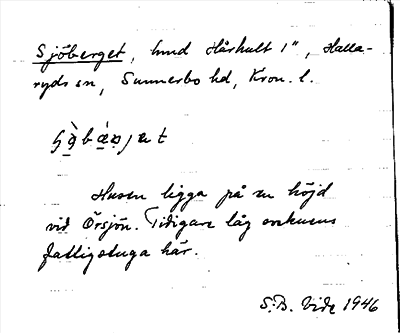 Sjöberget, hmd Hårhult 1", Halla-
ryds sn, Sunnerbo hd, Kron. l.
Husen ligga på en höjd
vid Örsjön. Tidigare låg sockens
fattigstuga här.
S. B. Vide 1946